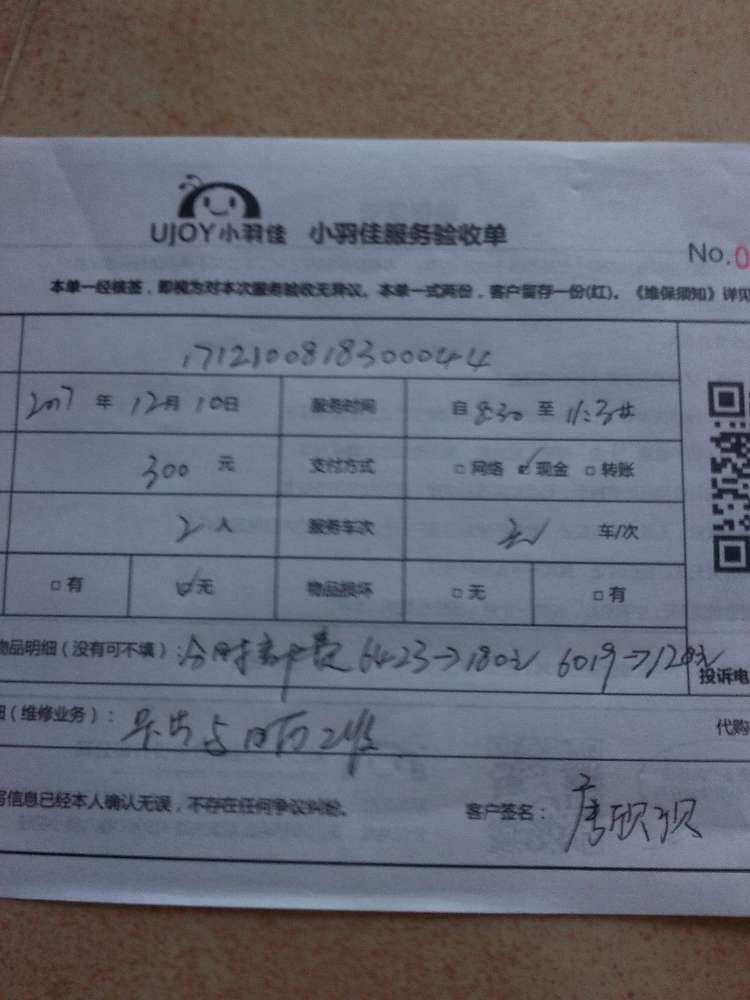 UJOY小羽佳 小羽佳服务验收单
No.0
本单一经核签,即视为对本次服务验收无异议。本单一式两份,客户留存一份(红)。《维保须知》详见
1712100818300044
2017年12月10日 服务时间 自8:30至11:30
300元 支付方式 □网络 ☑现金 □转账
2人 服务车次 车/次
□有 ☑无 物品损坏 □无 □有
物品明细(没有可不填): 6423→180元 6019→120元
投诉电
(维修业务):
代购
写信息已经本人确认无误,不存在任何争议纠纷。 客户签名: